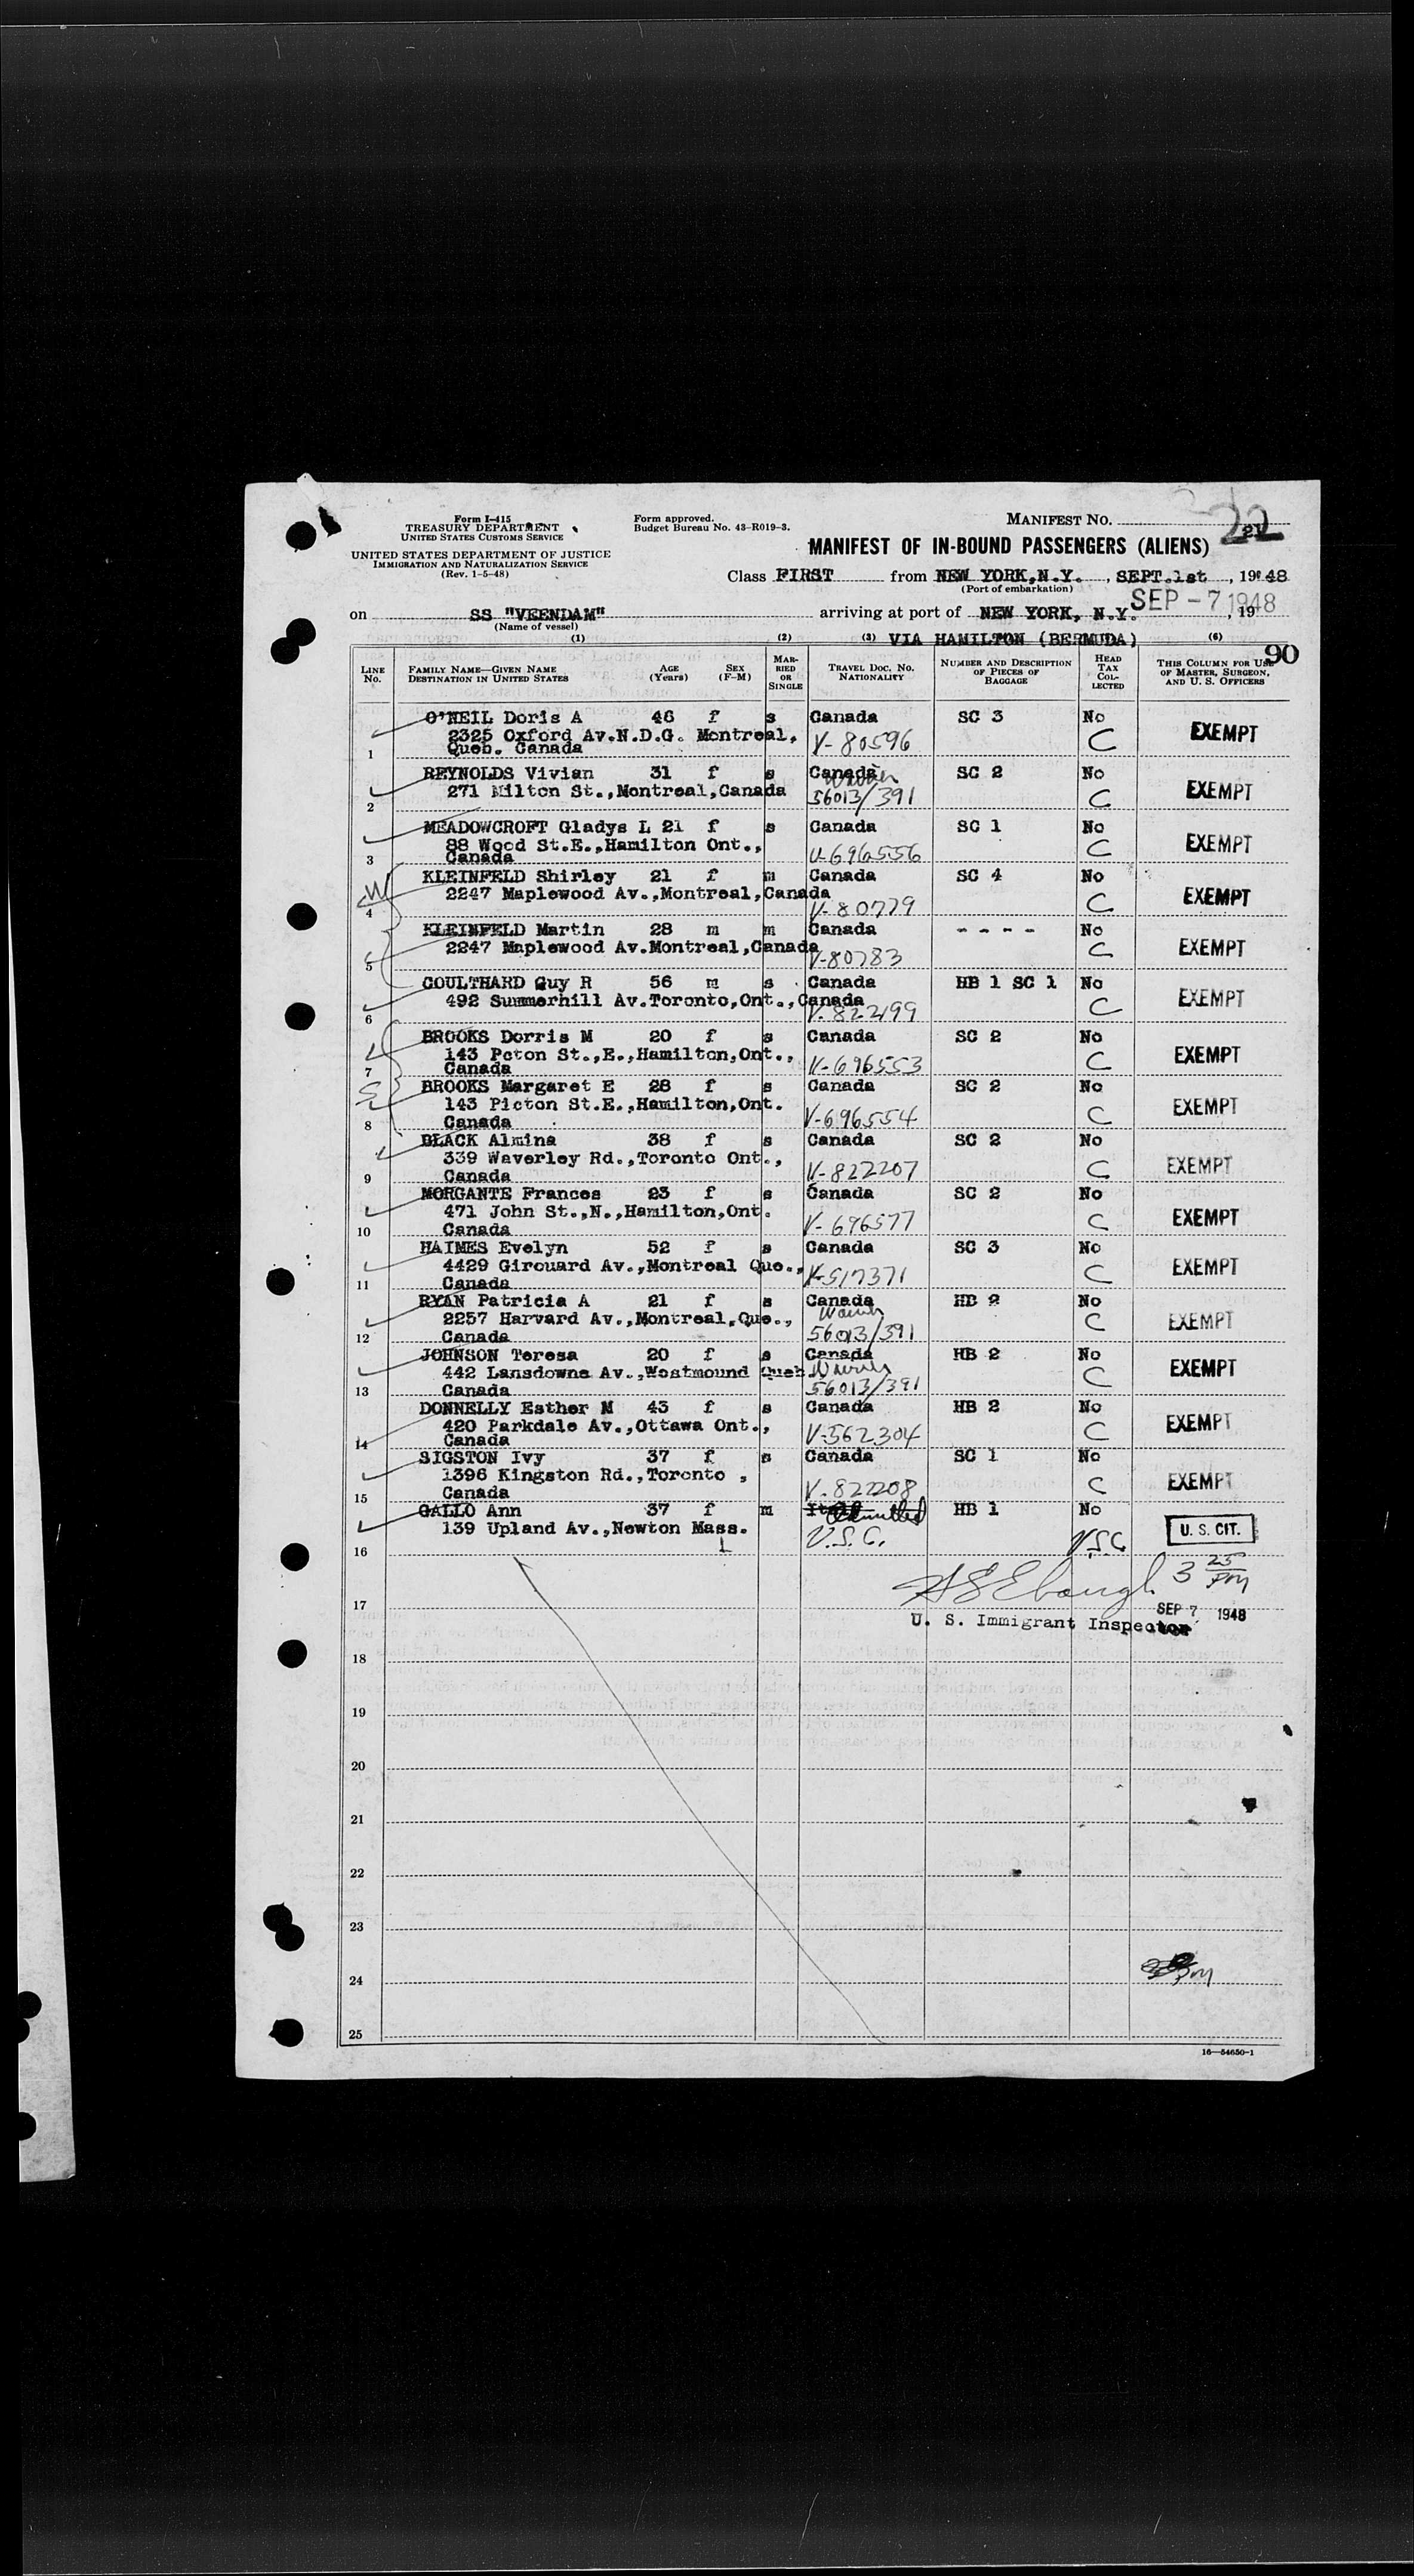 Form I-415
TREASURY DEPARTMENT
UNITED STATES CUSTOMS SERVICE
UNITED STATES DEPARTMENT OF JUSTICE
IMMIGRATION AND NATURALIZATION SERVICE
(Rev. 1-5-48)
Form approved.
Budget Bureau No. 43-R019-3.
MANIFEST NO. 22
MANIFEST OF IN-BOUND PASSENGERS (ALIENS)
Class FIRST from NEW YORK, N.Y. , SEPT.1st , 1948
(Port of embarkation)
on SS "VEENDAM" arriving at port of NEW YORK, N.Y. SEP - 7 1948 , 19
(Name of vessel)
(1) (2) (3) VIA HAMILTON (BERMUDA) (6)
90
LINE No. FAMILY NAME—GIVEN NAME DESTINATION IN UNITED STATES AGE (Years) SEX (F-M) MARRIED OR SINGLE TRAVEL DOC. NO. NATIONALITY NUMBER AND DESCRIPTION OF PIECES OF BAGGAGE HEAD TAX COLLECTED THIS COLUMN FOR USE OF MASTER, SURGEON, AND U. S. OFFICERS
O'NEIL Doris A 46 f s Canada SC 3 No
2325 Oxford Av.N.D.G. Montreal, V-80596 C EXEMPT
1 Queb. Canada
REYNOLDS Vivian 31 f s Canada SC 2 No
271 Milton St.,Montreal,Canada EXEMPT
2 56013/391 C
MEADOWCROFT Gladys L 21 f s Canada SC 1 No
88 Wood St.E.,Hamilton Ont., EXEMPT
3 Canada V-696556 C
KLEINFELD Shirley 21 f m Canada SC 4 No
W 2247 Maplewood Av.,Montreal,Canada EXEMPT
4 V-80779 C
KLEINFELD Martin 28 m m Canada - - - - No
2247 Maplewood Av.Montreal,Canada EXEMPT
5 V-80783 C
COULTHARD Guy R 56 m s Canada HB 1 SC 1 No
492 Summerhill Av.Toronto,Ont.,Canada EXEMPT
6 V-822199 C
BROOKS Dorris M 20 f s Canada SC 2 No
143 Pcton St.,E.,Hamilton,Ont., EXEMPT
7 Canada V-696553 C
BROOKS Margaret E 28 f s Canada SC 2 No
143 Picton St.E.,Hamilton,Ont. EXEMPT
8 Canada V-696554 C
BLACK Almina 38 f s Canada SC 2 No
339 Waverley Rd.,Toronto Ont., EXEMPT
9 Canada V-822207 C
MORGANTE Frances 23 f s Canada SC 2 No
471 John St.,N.,Hamilton,Ont. EXEMPT
10 Canada V-696577 C
HAIMES Evelyn 52 f s Canada SC 3 No
4429 Girouard Av.,Montreal Que., EXEMPT
11 Canada V-517371 C
RYAN Patricia A 21 f s Canada HB 2 No
2257 Harvard Av.,Montreal,Que., EXEMPT
12 Canada 56013/391 C
JOHNSON Teresa 20 f s Canada HB 2 No
442 Lansdowne Av.,Westmound Queb EXEMPT
13 Canada 56013/391 C
DONNELLY Esther M 43 f s Canada HB 2 No
420 Parkdale Av.,Ottawa Ont., EXEMPT
14 Canada V-562304 C
SIGSTON Ivy 37 f s Canada SC 1 No
1396 Kingston Rd.,Toronto , EXEMPT
15 Canada V-822208 C
GALLO Ann 37 f m Admitted HB 1 No
139 Upland Av.,Newton Mass. U.S.C. U.S.C. U. S. CIT.
16
3 25 PM
17 SEP 7 1948
U. S. Immigrant Inspector
18
19
20
21
22
23
24
25
16—54650-1